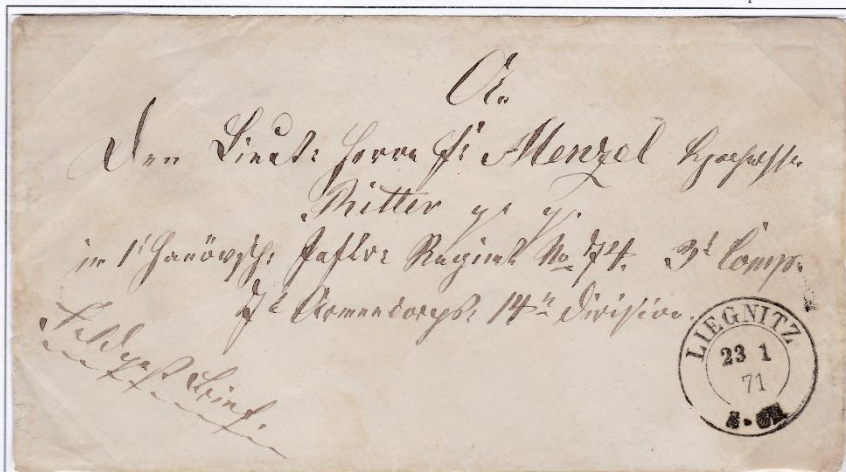 An
den Lieut: Herrn Fr: Menzel
Ritter p. p.
in 1t Hanövsch: Inftr: Regimt No 74. 3t Comp.
7t Armeecorps: 14n Division.
Feldpost Brief.
LIEGNITZ
23 1
71